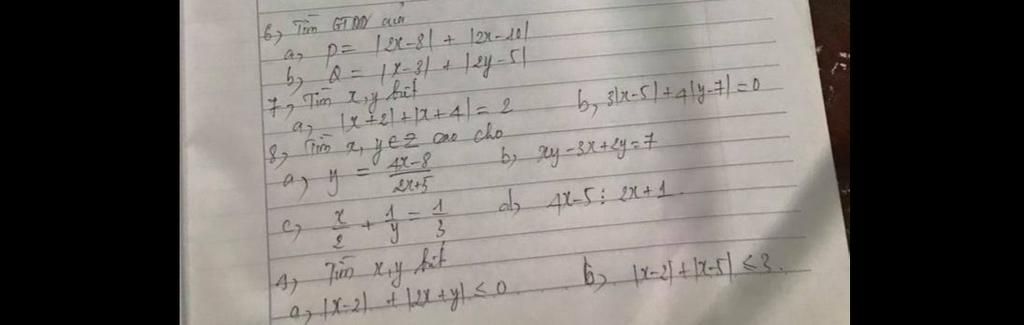 6, Tìm GTNN của
a, P = |2x-8| + |2x-10|
b, Q = |x-3| + |2y-5|
7, Tìm x,y biết
a, |x+2| + |x+4| = 2 b, 3|x-5| + 4|y-7| = 0
8, Tìm x, y∈Z sao cho
a, y = \frac{4x-8}{2x+5} b, xy - 3x + 2y = 7
c, \frac{x}{2} + \frac{1}{y} = \frac{1}{3} d, 4x-5 ⋮ 2x+1
9, Tìm x,y biết
a, |x-2| + |2x+y| ≤ 0 b, |x-2| + |x-5| ≤ 3.